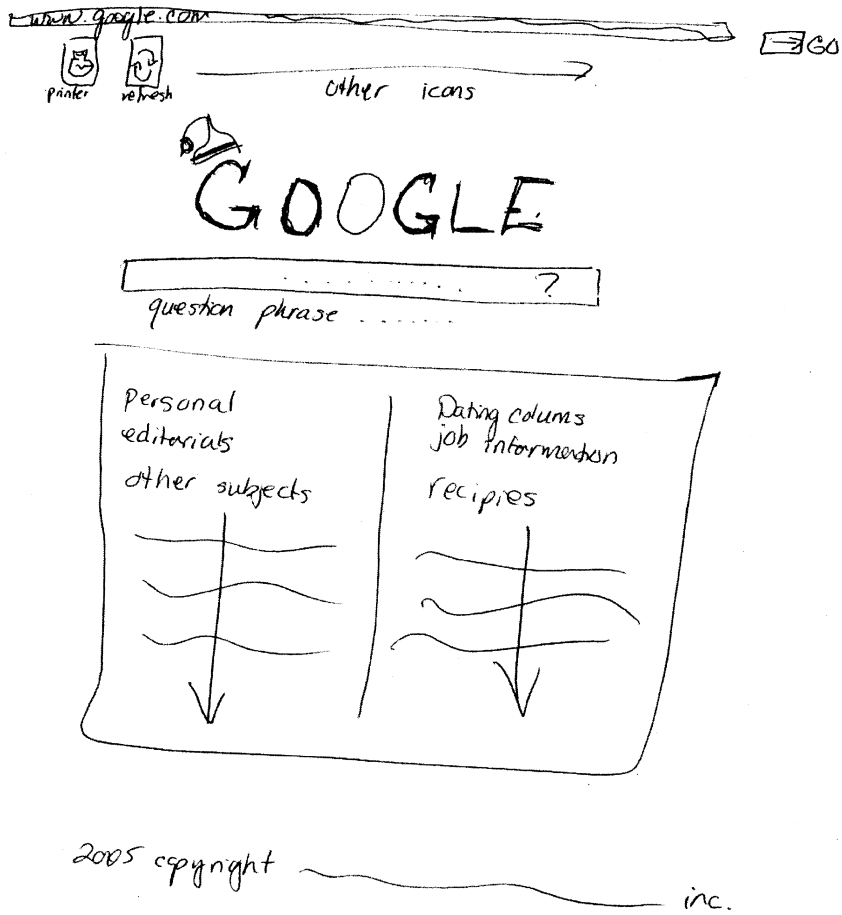 www.google.com
GO
printer refresh other icons
GOOGLE
?
question phrase .......
Personal
editorials
other subjects
Dating colums
job information
recipies
2005 copyright inc.